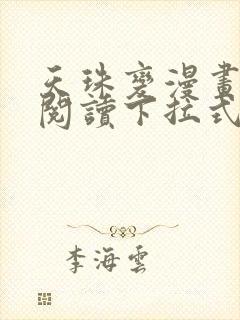 天珠變漫畫
閱讀下拉式
李海雲